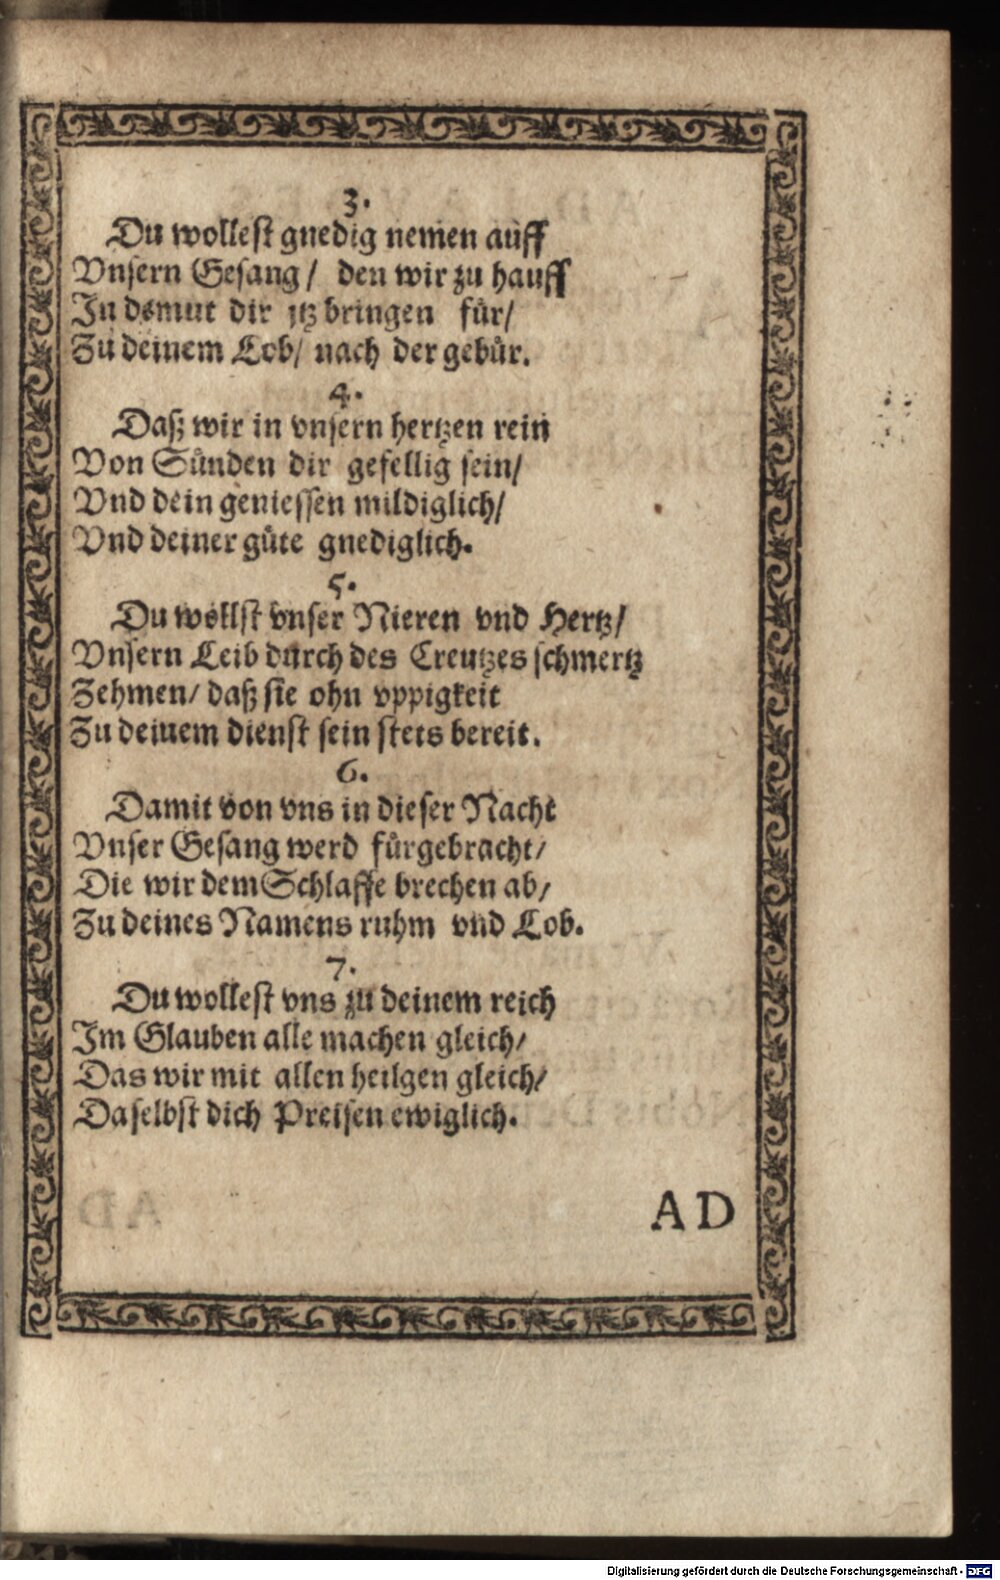 3.
Du wollest gnedig nemen auff
Vnsern Gesang/ den wir zu hauff
In demut dir jtz bringen für/
Zu deinem Lob/ nach der gebür.
4.
Daß wir in vnsern hertzen rein
Von Sünden dir gefellig sein/
Vnd dein geniessen mildiglich/
Vnd deiner güte gnediglich.
5.
Du wollst vnser Nieren vnd Hertz/
Vnsern Leib durch des Creutzes schmertz
Zehmen/ daß sie ohn vppigkeit
Zu deinem dienst sein stets bereit.
6.
Damit von vns in dieser Nacht
Vnser Gesang werd fürgebracht/
Die wir dem Schlaffe brechen ab/
Zu deines Namens ruhm vnd Lob.
7.
Du wollest vns zu deinem reich
Im Glauben alle machen gleich/
Das wir mit allen heilgen gleich/
Daselbst dich Preisen ewiglich.
AD
Digitalisierung gefördert durch die Deutsche Forschungsgemeinschaft - DFG